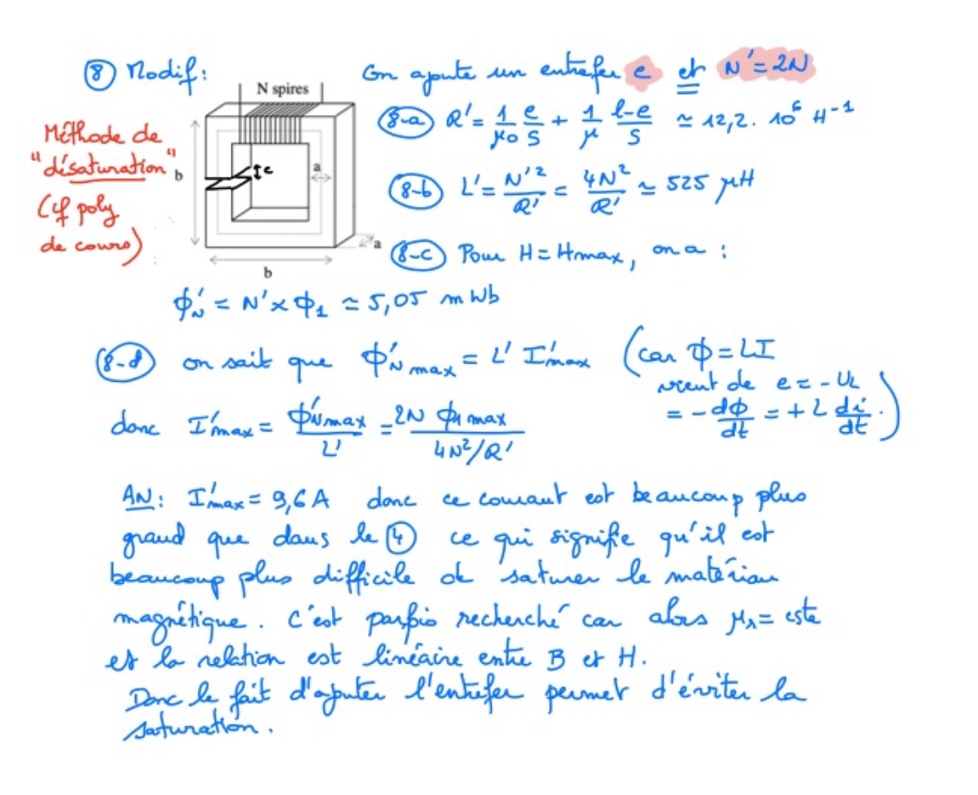 ⑧ Modif :
On ajoute un entrefer e et N' = 2N
N spires
Méthode de
"désaturation"
(cf poly
de cours)
b
e
a
a
b
8-a R' = 1/μ0 e/S + 1/μ (l-e)/S ≃ 12,2. 10⁶ H⁻¹
8-b L' = N'²/R' = 4N²/R' ≃ 525 μH
8-c Pour H = Hmax, on a :
ϕ'N = N' × ϕ1 ≃ 5,05 mWb
8-d on sait que ϕ'N max = L' I'max (car ϕ = LI
vient de e = - UL
= - dϕ/dt = + L di/dt.)
donc I'max = ϕ'Nmax/L' = 2N ϕ1 max/(4N²/R')
AN : I'max = 9,6 A donc ce courant est beaucoup plus
grand que dans le ④ ce qui signifie qu'il est
beaucoup plus difficile de saturer le matériau
magnétique. C'est parfois recherché car alors μr = cste
et la relation est linéaire entre B et H.
Donc le fait d'ajouter l'entrefer permet d'éviter la
saturation.